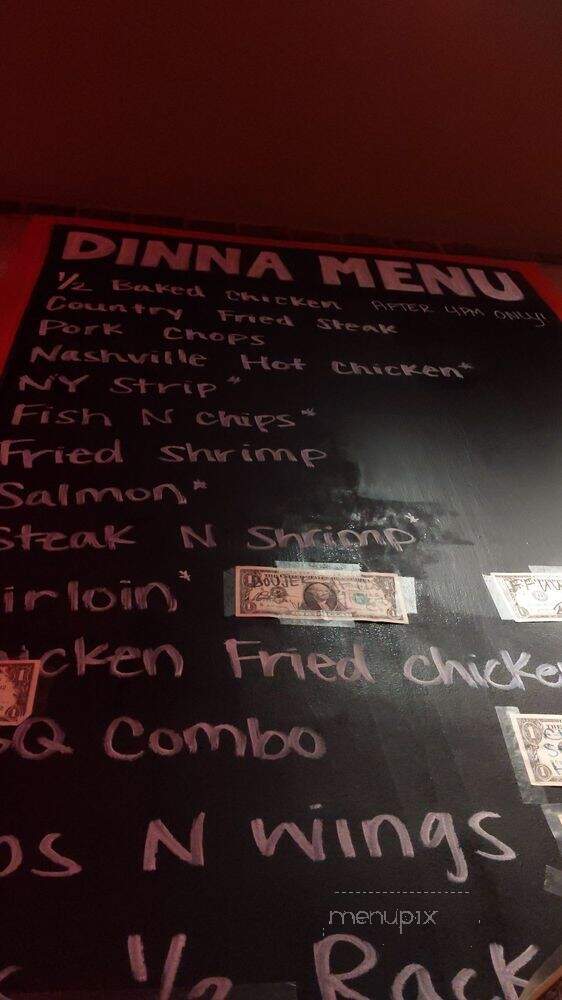 DINNA MENU
1/2 Baked chicken AFTER 4PM ONLY!
Country Fried Steak
Pork Chops
Nashville Hot Chicken*
NY Strip*
Fish N Chips*
Fried Shrimp
Salmon*
Steak N Shrimp*
irloin*
BOUJE
icken Fried Chicke
Q Combo
os N Wings
menupix
1/2 Rack